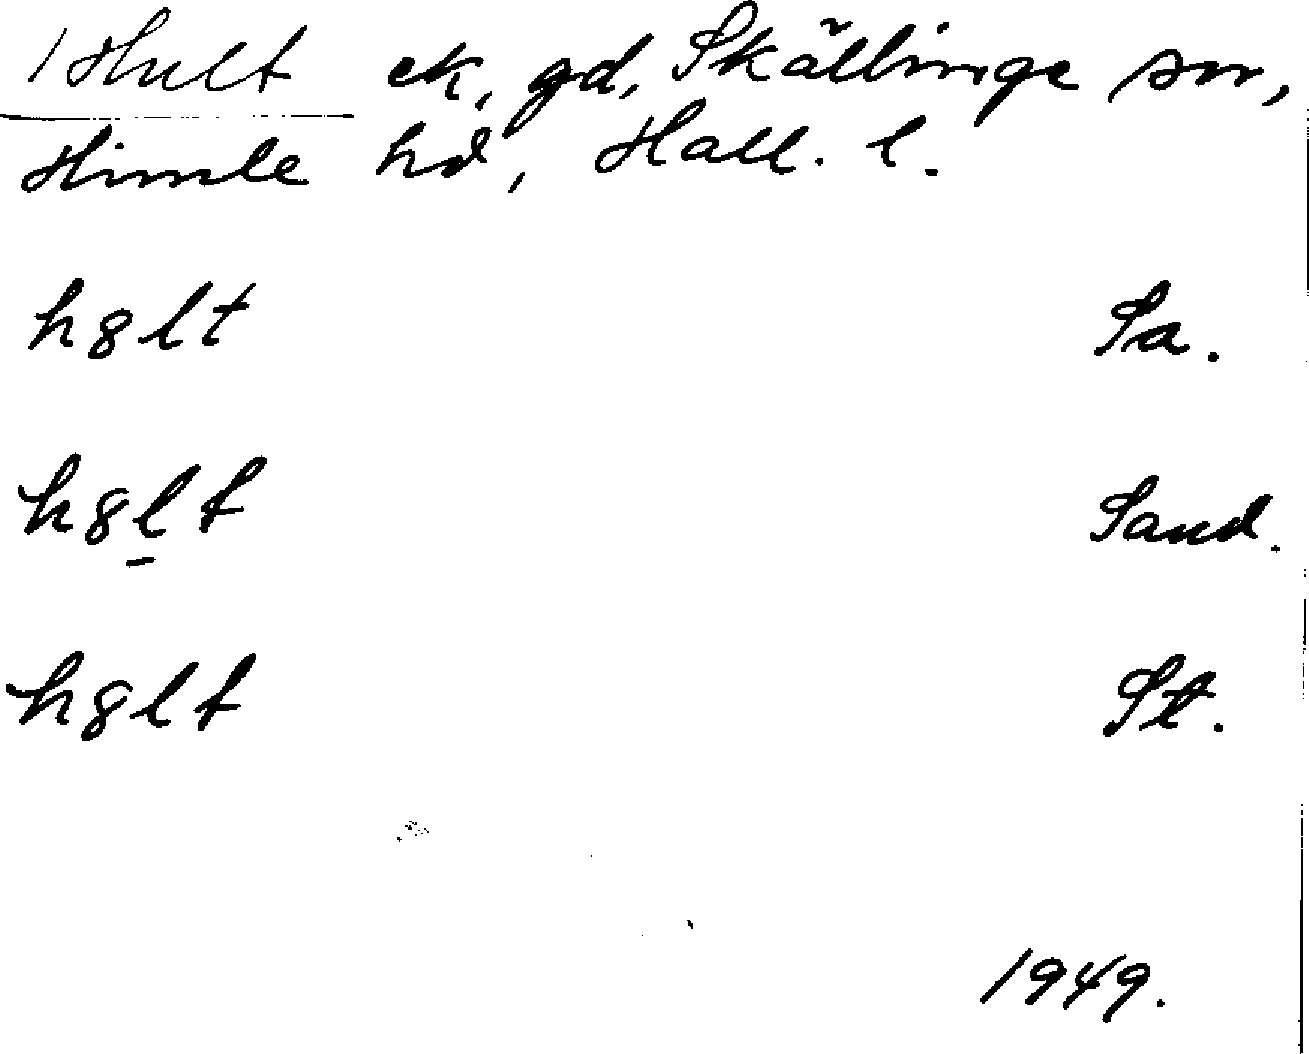 Hult ek. gd, Skällinge sn,
Himle hd, Hall. l.
h8lt Sa.
h8l̠t Sand.
h8lt St.
1949.